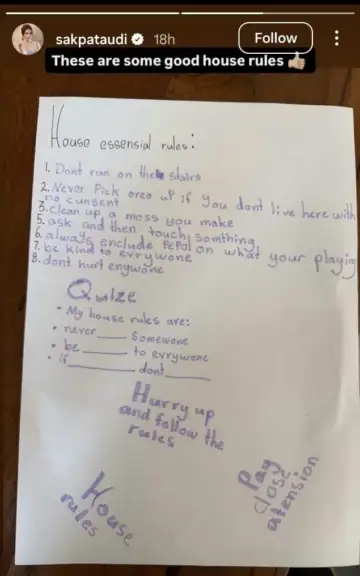 sakpataudi 18h
Follow
These are some good house rules 👍🏻
House essensial rules:
1. Dont run on the stairs
2. Never Pick oreo up if you dont live here with
no cunsent
3. clean up a mess you make
5. ask and then touch somthing
6. always enclude PePol on what your playing
7. be kind to evrywone
8. dont hurt enywone
Quize
• My house rules are:
• never____ Somewone
• be ____ to evrywone
• if______ dont____
Hurry up
and follow the
rules
House
rules
Pay
close
atension